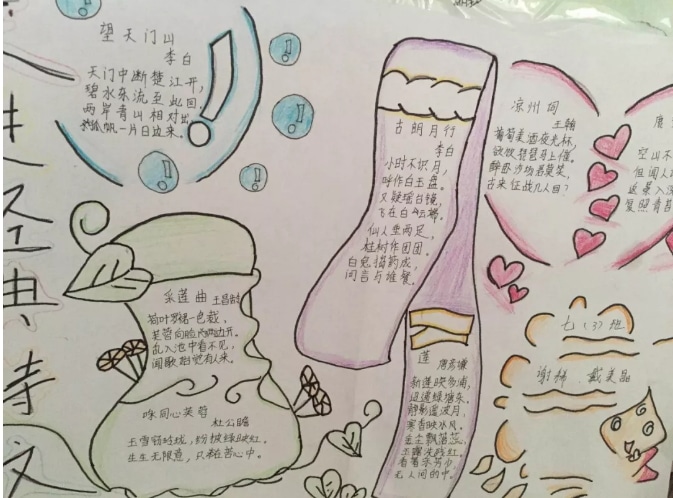 望天门山
李白
天门中断楚江开,
碧水东流至此回。
两岸青山相对出,
孤帆一片日边来。
古朗月行
李白
小时不识月,
呼作白玉盘。
又疑瑶台镜,
飞在白云端。
仙人垂两足,
桂树作团团。
白兔捣药成,
问言与谁餐。
凉州词
王翰
葡萄美酒夜光杯,
欲饮琵琶马上催。
醉卧沙场君莫笑,
古来征战几人回?
空山不
但闻人
返景入深
复照青苔
采莲曲 王昌龄
荷叶罗裙一色裁,
芙蓉向脸两边开。
乱入池中看不见,
闻歌始觉有人来。
咏同心芙蓉
杜公瞻
生生无限意,只在苦心中。
莲
新莲映多浦,
迢递绿塘东。
静影摇波月,
寒香映水风。
金尘飘落蕊,
玉露洗残红。
看著余芳少,
无人问的中。
七(3)班
谢稀 戴美晶
进
经
典
诗
文